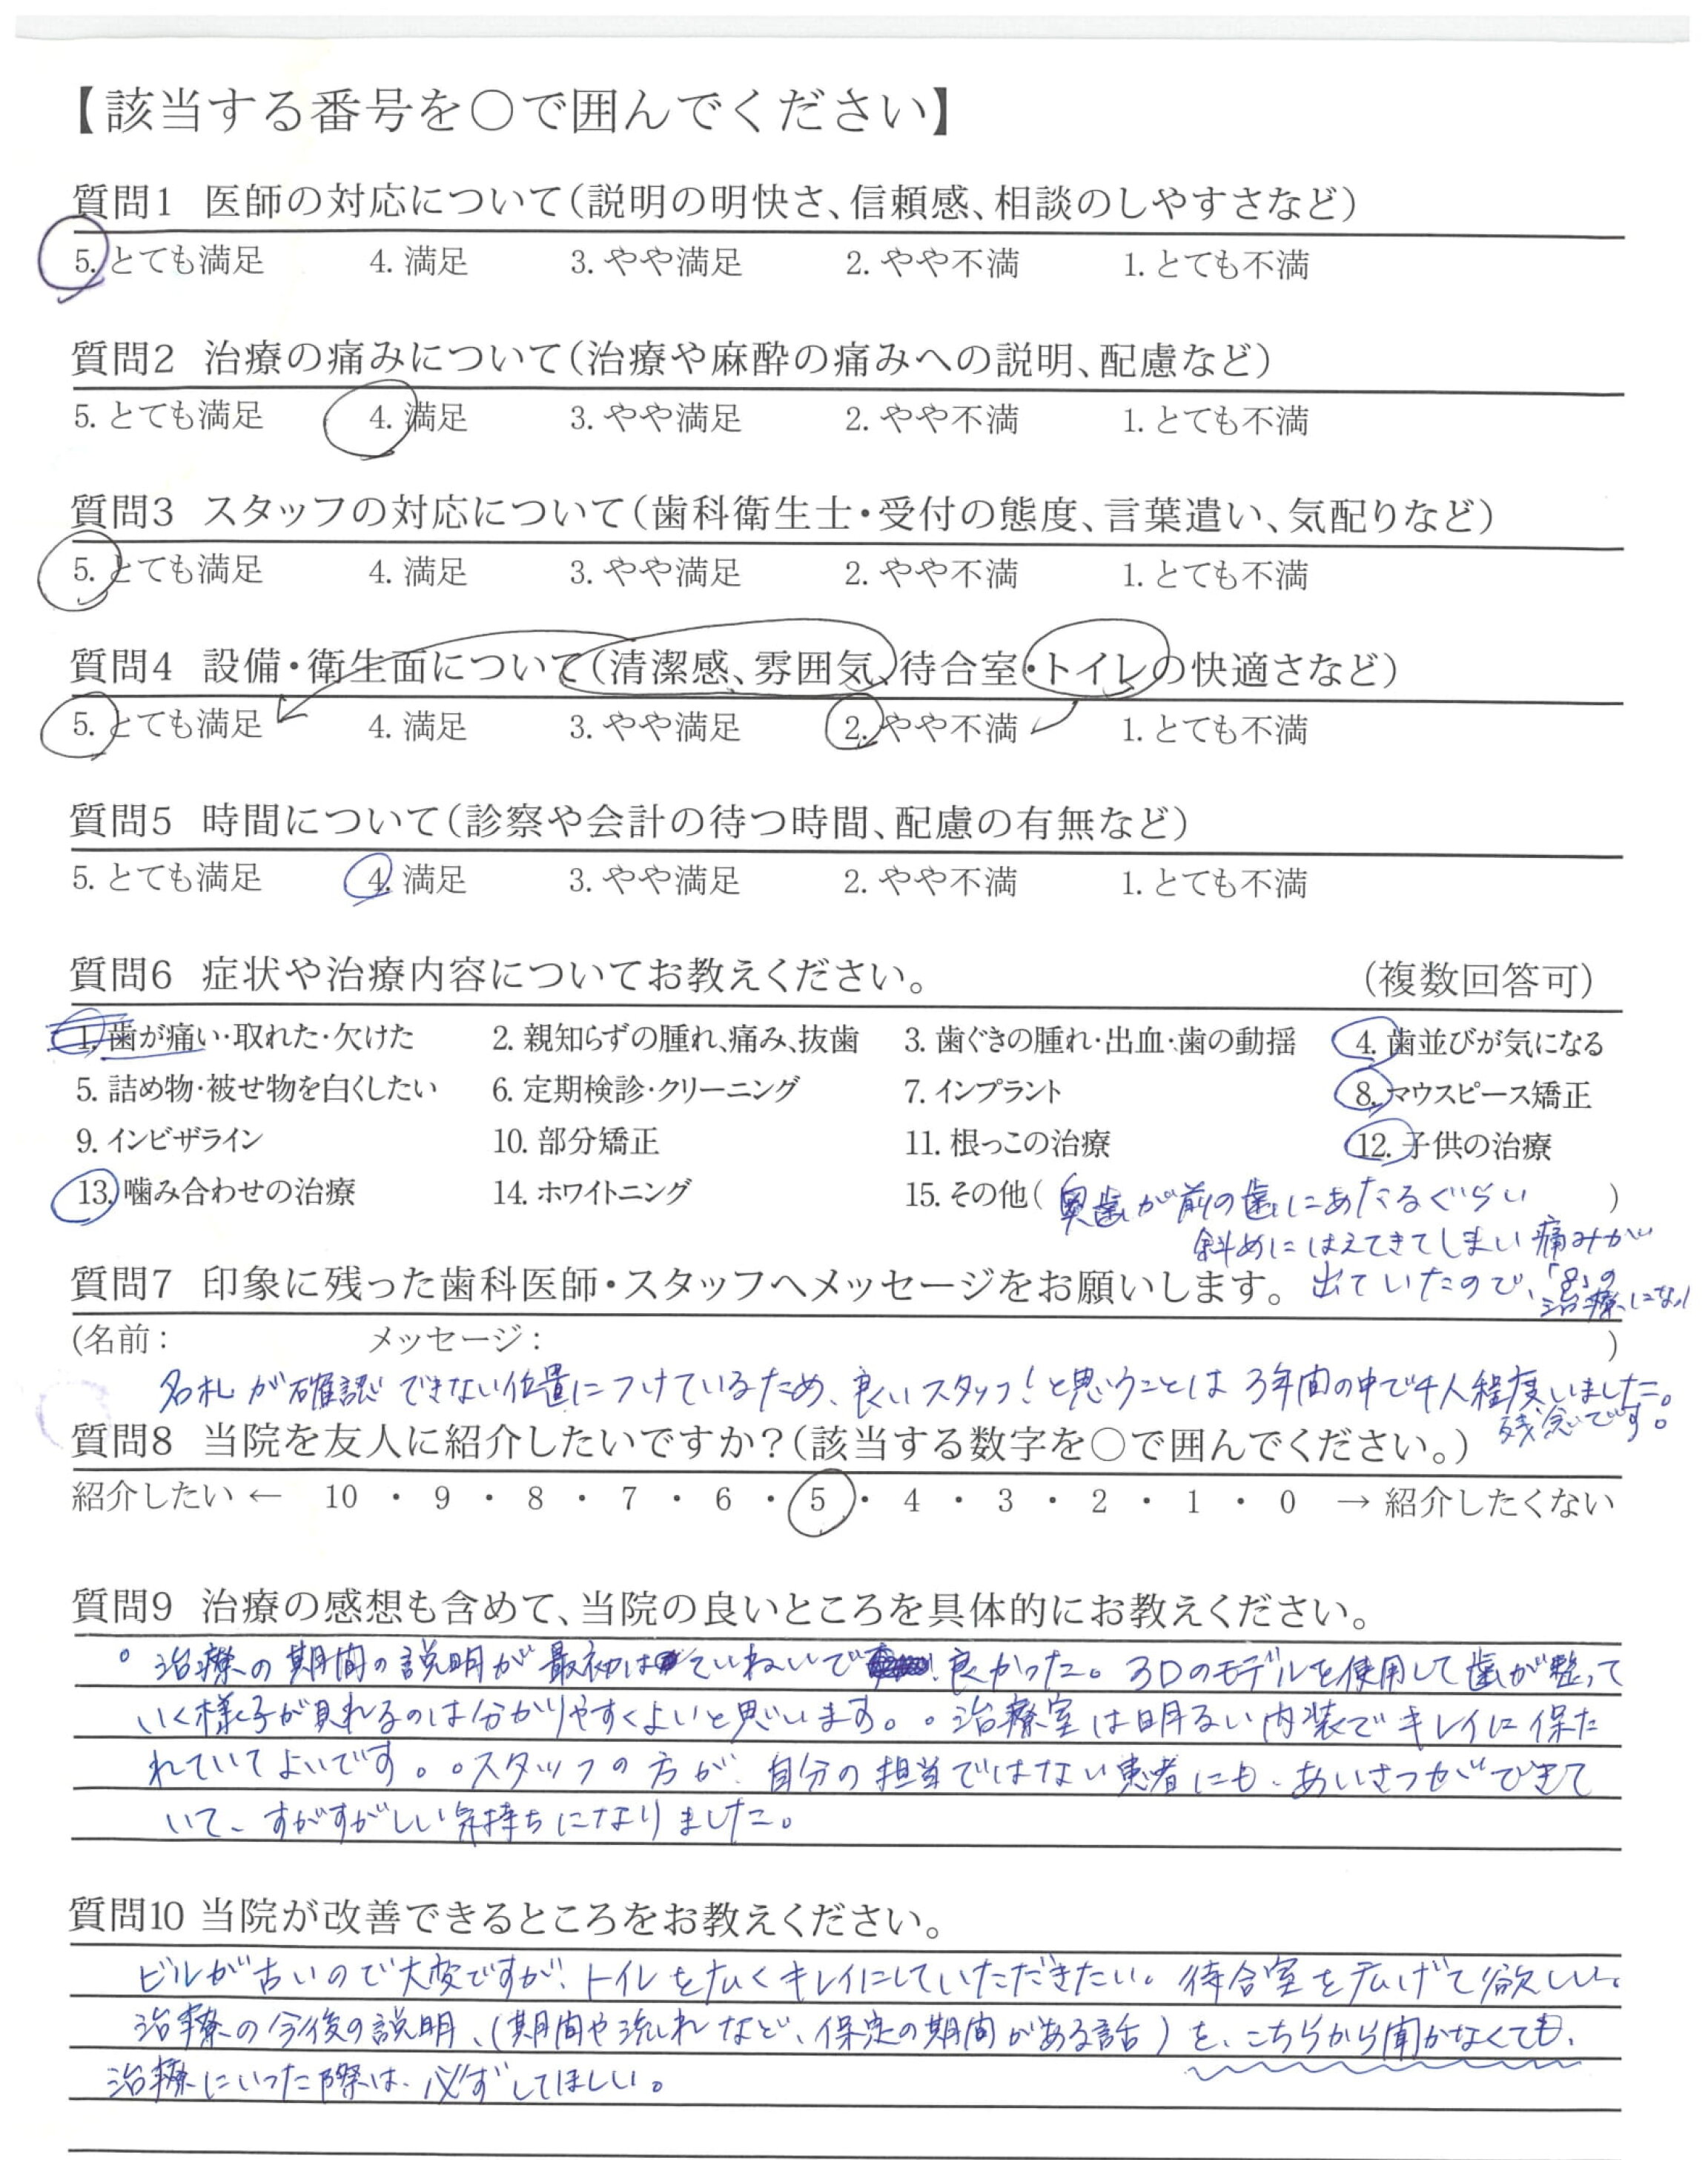 【該当する番号を○で囲んでください】
質問1 医師の対応について(説明の明快さ、信頼感、相談のしやすさなど)
5. とても満足 4. 満足 3. やや満足 2. やや不満 1. とても不満
質問2 治療の痛みについて(治療や麻酔の痛みへの説明、配慮など)
5. とても満足 4. 満足 3. やや満足 2. やや不満 1. とても不満
質問3 スタッフの対応について(歯科衛生士・受付の態度、言葉遣い、気配りなど)
5. とても満足 4. 満足 3. やや満足 2. やや不満 1. とても不満
質問4 設備・衛生面について(清潔感、雰囲気、待合室・トイレの快適さなど)
5. とても満足 4. 満足 3. やや満足 2. やや不満 1. とても不満
質問5 時間について(診察や会計の待つ時間、配慮の有無など)
5. とても満足 4. 満足 3. やや満足 2. やや不満 1. とても不満
質問6 症状や治療内容についてお教えください。 (複数回答可)
1. 歯が痛い・取れた・欠けた 2. 親知らずの腫れ、痛み、抜歯 3. 歯ぐきの腫れ・出血・歯の動揺 4. 歯並びが気になる
5. 詰め物・被せ物を白くしたい 6. 定期検診・クリーニング 7. インプラント 8. マウスピース矯正
9. インビザライン 10. 部分矯正 11. 根っこの治療 12. 子供の治療
13. 噛み合わせの治療 14. ホワイトニング 15. その他( 奥歯が前の歯にあたるぐらい )
斜めにはえてきてしまい痛みが
質問7 印象に残った歯科医師・スタッフへメッセージをお願いします。 出ていたので、「8」の
治療になり
(名前: メッセージ: )
名札が確認できない位置につけているため、良いスタッフ!と思うことは3年間の中で4人程度いました。
残念です。
質問8 当院を友人に紹介したいですか?(該当する数字を○で囲んでください。)
紹介したい ← 10 ・ 9 ・ 8 ・ 7 ・ 6 ・ 5 ・ 4 ・ 3 ・ 2 ・ 1 ・ 0 → 紹介したくない
質問9 治療の感想も含めて、当院の良いところを具体的にお教えください。
。治療の期間の説明が最初はていねいで良かった。3Dのモデルを使用して歯が整って
いく様子が見れるのは分かりやすくよいと思います。。治療室は明るい内装でキレイに保た
れていてよいです。。スタッフの方が、自分の担当ではない患者にも、あいさつができて
いて、すがすがしい気持ちになりました。
質問10 当院が改善できるところをお教えください。
ビルが古いので大変ですが、トイレを広くキレイにしていただきたい。待合室を広げて欲しい。
治療の今後の説明、(期間や流れなど、保定の期間がある話)を、こちらから聞かなくても、
治療にいった際は、必ずしてほしい。